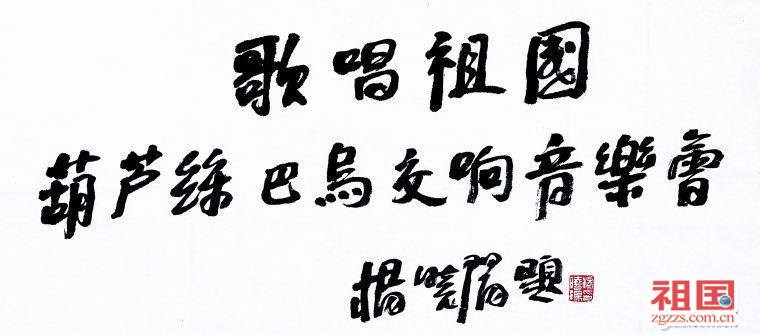 歌唱祖國
葫芦絲巴烏交响音樂會
楊曉陽題
祖国
zgzzs.com.cn